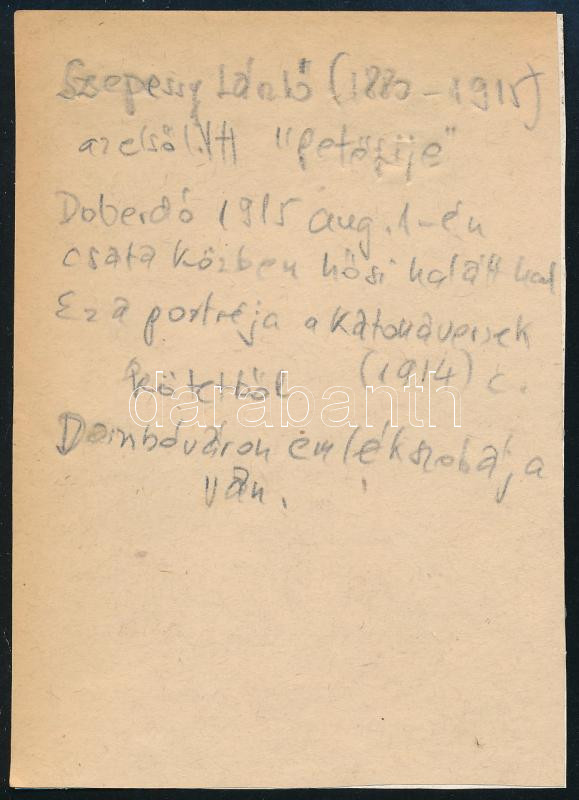 Szepessy László (1880–1915)
az első VH "petőfije"
Doberdó 1915 aug. 1-én
csata közben hősi halált hal
Ez a portréja a Katonaversek
kötetből (1914) c.
darabanth
Dombóváron emlékszobája
van.